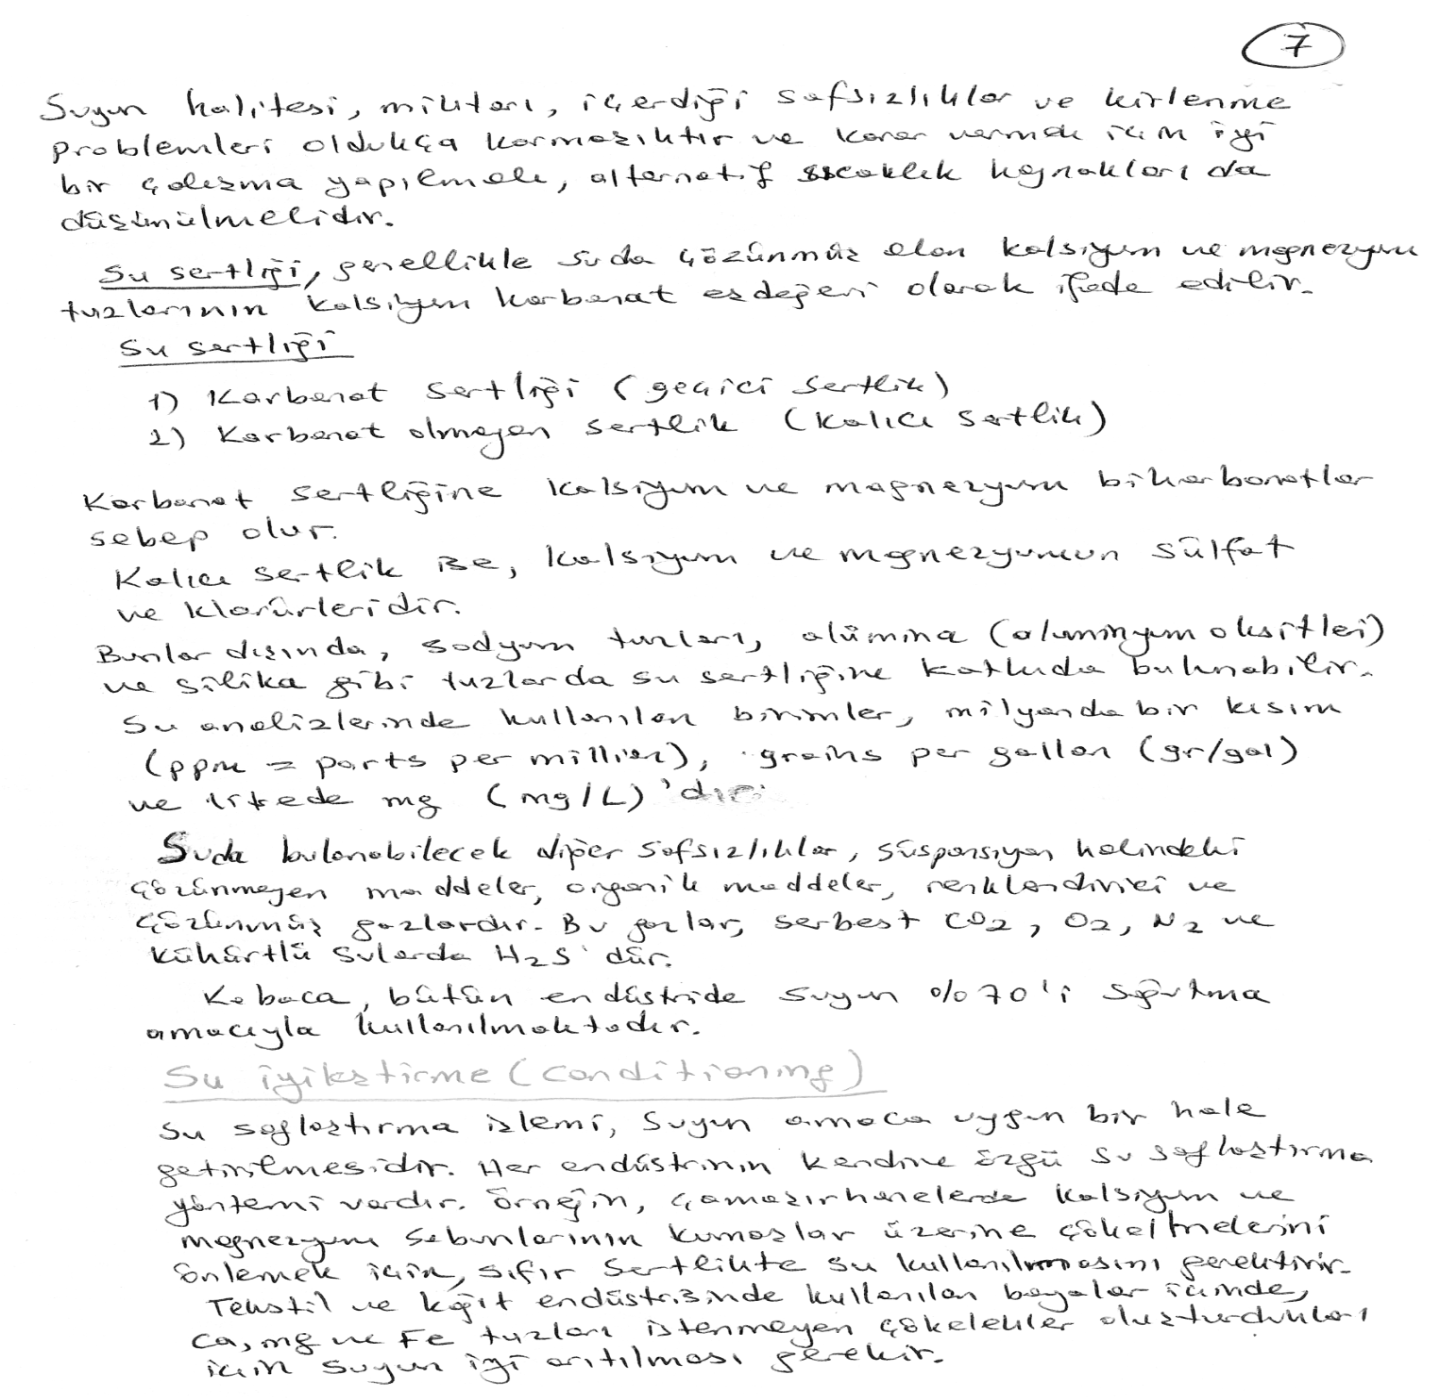 7
Suyun kalitesi, miktarı, içerdiği safsızlıklar ve kirlenme
problemleri oldukça karmaşıktır ve karar vermek için iyi
bir çalışma yapılmalı, alternatif sıcaklık kaynakları da
düşünülmelidir.
Su sertliği, genellikle suda çözünmüş olan kalsiyum ve magnezyum
tuzlarının kalsiyum karbonat eşdeğeri olarak ifade edilir.
Su sertliği
1) Karbonat sertliği (geçici sertlik)
2) Karbonat olmayan sertlik (kalıcı sertlik)
Karbonat sertliğine kalsiyum ve magnezyum bikarbonatlar
sebep olur.
Kalıcı sertlik ise, kalsiyum ve magnezyumun sülfat
ve klorürleridir.
Bunlar dışında, sodyum tuzları, alümina (aluminyum oksitleri)
ve silika gibi tuzlarda su sertliğine katkıda bulunabilir.
Su analizlerinde kullanılan birimler, milyonda bir kısım
(ppm = parts per million), grains per gallon (gr/gal)
ve litrede mg (mg/L)'dir.
Suda bulanabilecek diğer safsızlıklar, süspansiyon halindeki
çözünmeyen maddeler, organik maddeler, renklendirici ve
çözünmüş gazlardır. Bu gazlar, serbest CO2, O2, N2 ve
kükürtlü sularda H2S'dür.
Kabaca, bütün endüstride suyun %70'i soğutma
amacıyla kullanılmaktadır.
Su iyileştirme (conditioning)
Su saflaştırma işlemi, suyun amaca uygun bir hale
getirilmesidir. Her endüstrinin kendine özgü su saflaştırma
yöntemi vardır. Örneğin, çamaşırhanelerde kalsiyum ve
magnezyum sabunlarının kumaşlar üzerine çökelmelerini
önlemek için, sıfır sertlikte su kullanılmasını gerektirir.
Tekstil ve kâğıt endüstrisinde kullanılan boyalar içinde,
Ca, mg ve Fe tuzları istenmeyen çökelekler oluşturdukları
için suyun iyi arıtılması gerekir.